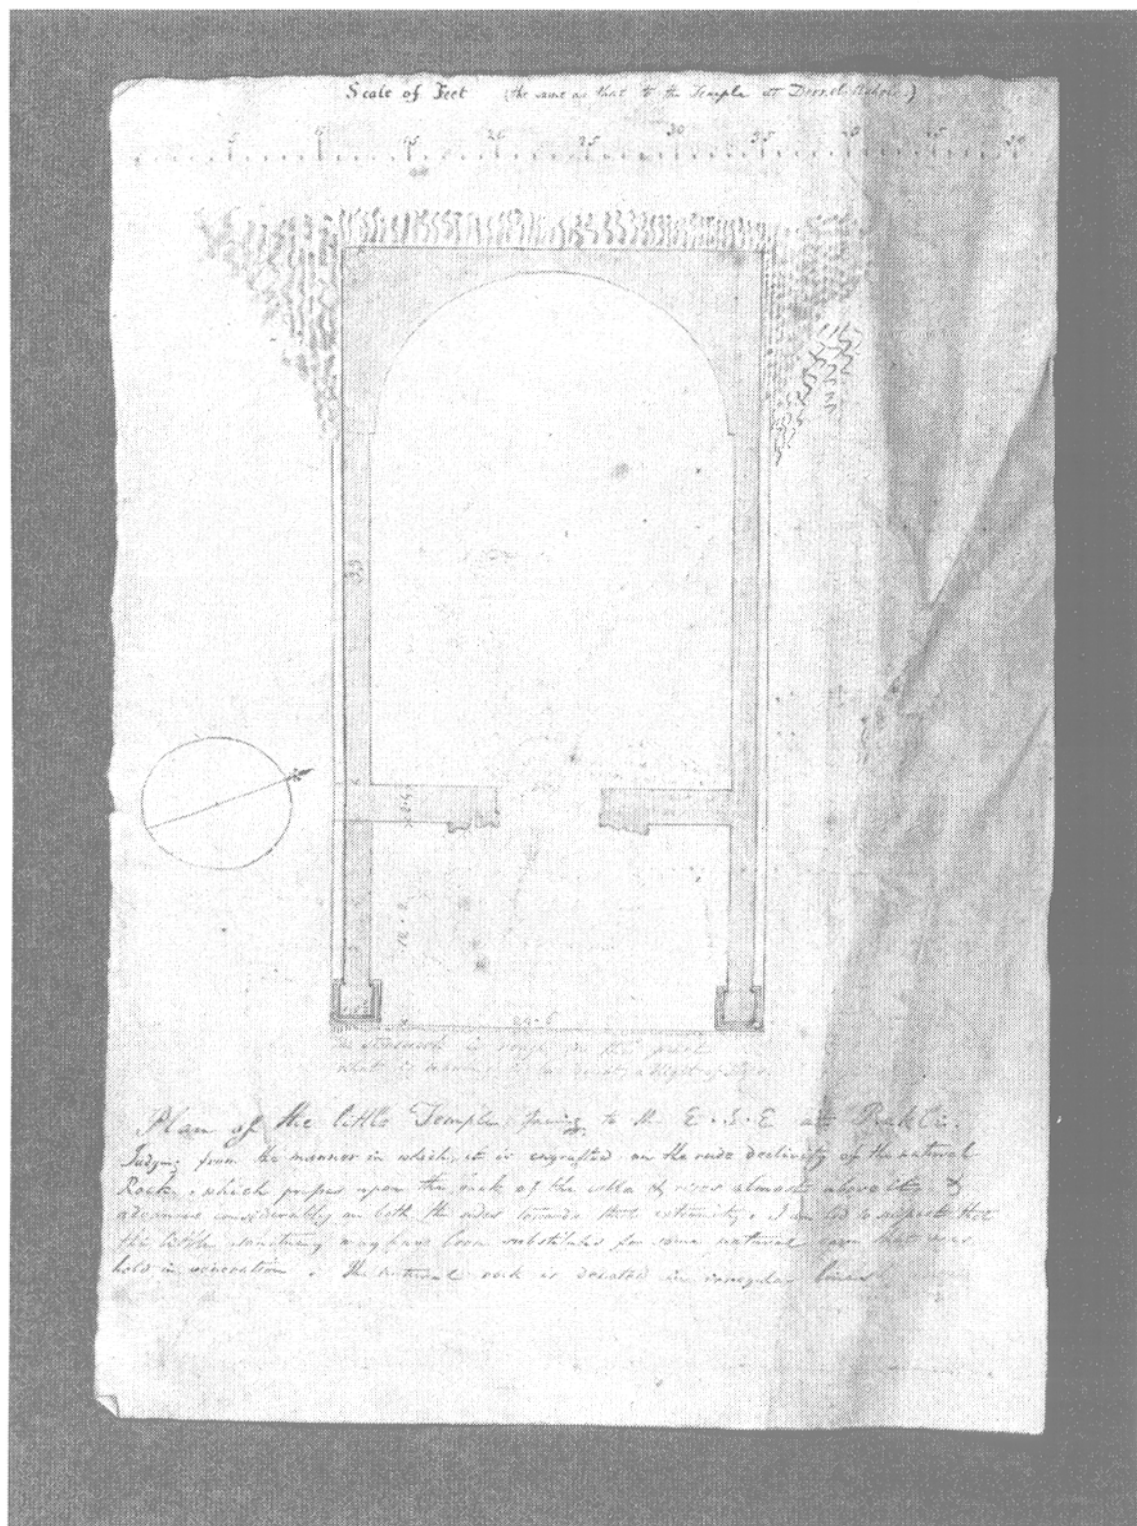 Scale of Feet (the same as that to the Temple at
5 15 20 25 30 35 45
33
2.4
10.2
24-6
is rough in this part
what is
Plan of the little Temple facing to the E.S.E at
Judging from the manner in which it is engrafted on the rude declivity of the natural
Rock, which presses upon the back of the cella & rises almost above it, &
advances considerably on both the sides towards that extremity, I am led to suspect that
the little sanctuary may have been substituted for some natural cave that was
held in veneration. The natural rock is denoted in irregular lines